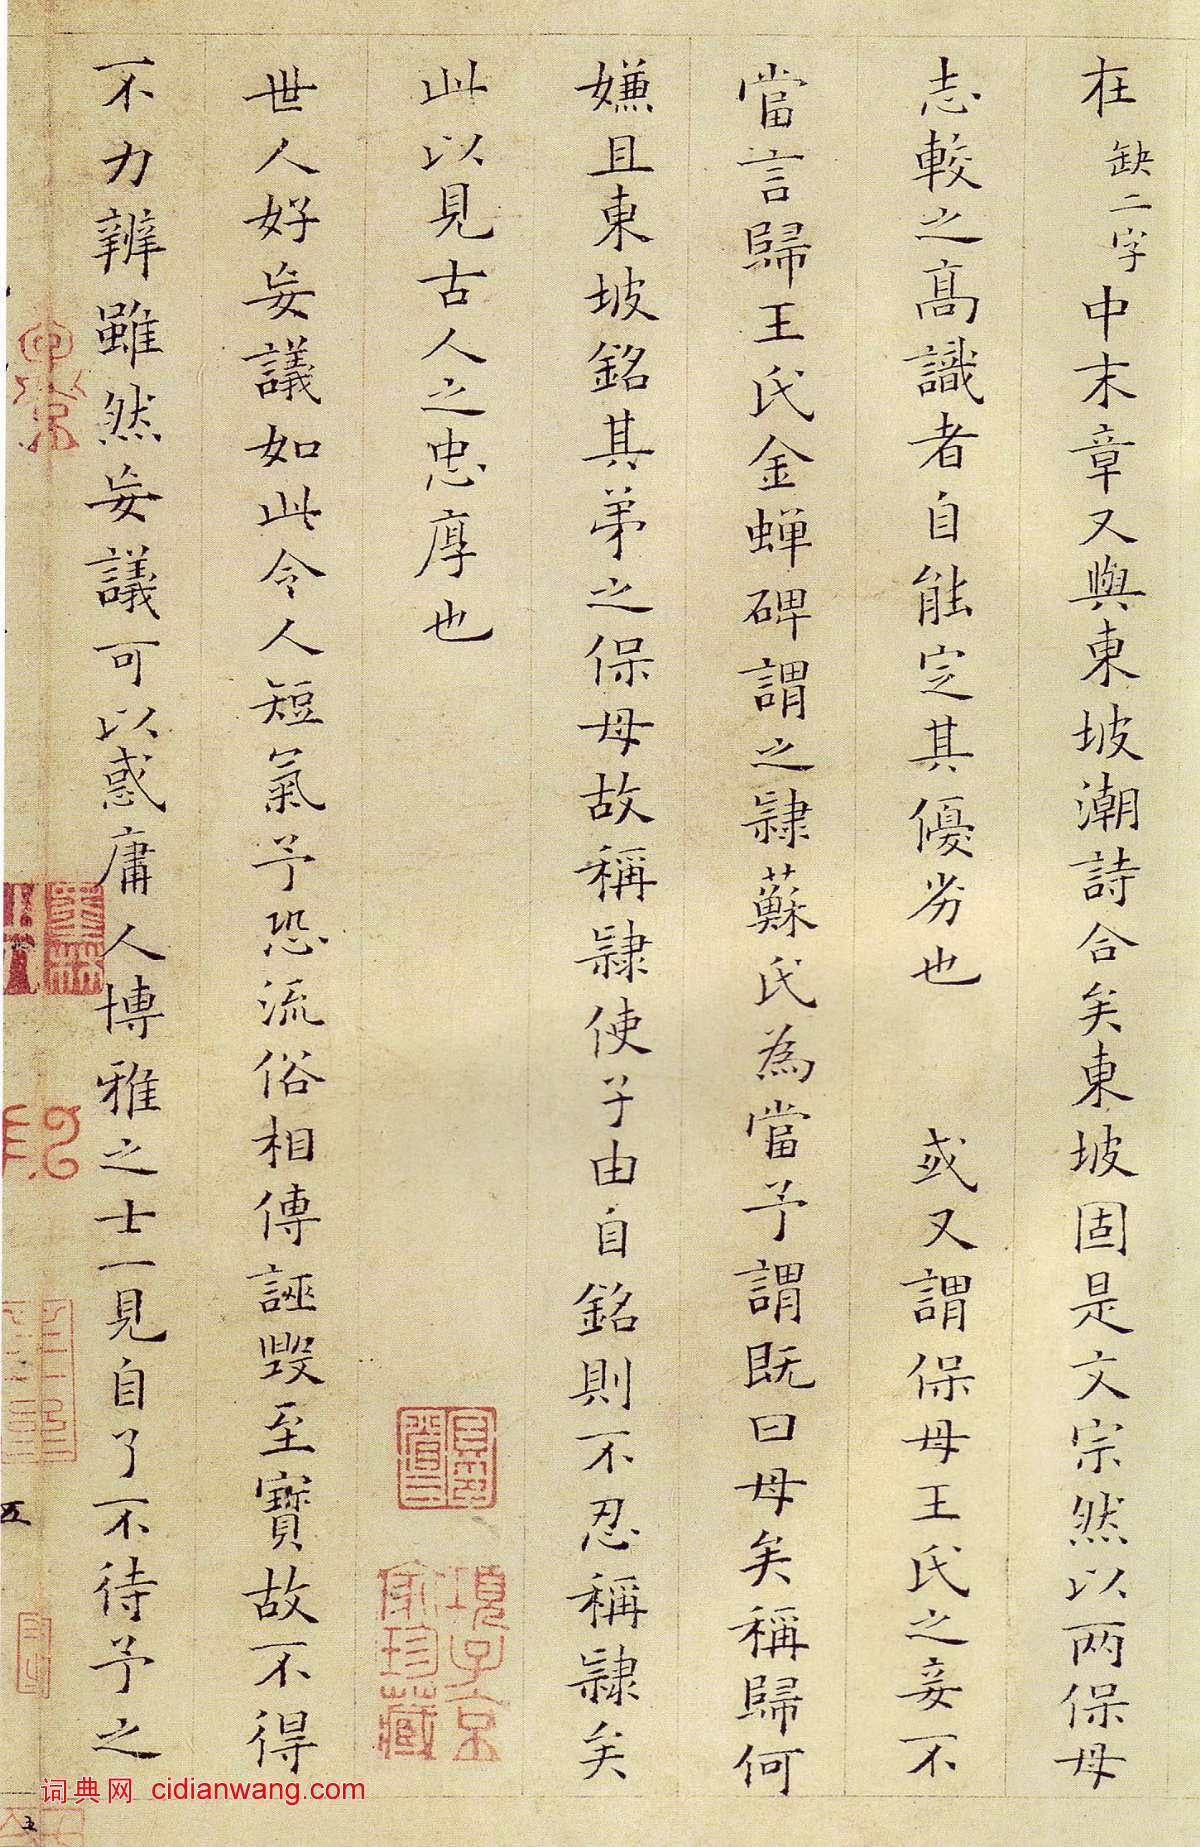 在缺二字中末章又與東坡潮詩合矣東坡固是文宗然以两保母
志較之高識者自能定其優劣也 或又謂保母王氏之妾不
當言歸王氏金蟬碑謂之隸蘇氏為當予謂既曰母矣稱歸何
嫌且東坡銘其弟之保母故稱隸使子由自銘則不忍稱隸矣
此以見古人之忠厚也
世人好妄議如此令人短氣予恐流俗相傳誣毀至寶故不得
不力辨雖然妄議可以惑庸人博雅之士一見自了不待予之
項子京家珍藏
五
五
词典网 cidianwang.com